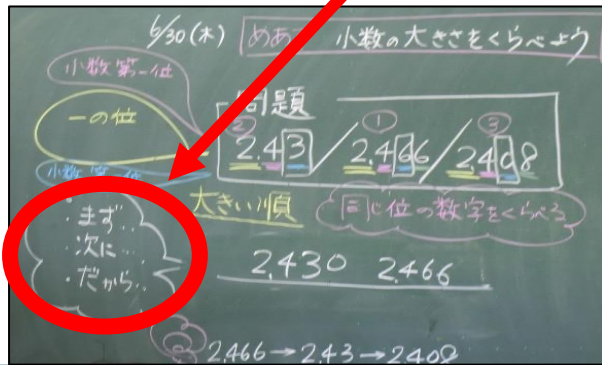 6/30(木) めあ 小数の大きさをくらべよう
小数第一位
一の位
問題
② ① ③
2.43/2.466/2.408
小数第 位
大きい順
同じ位の数字をくらべる
・まず‥
・次に…
・だから‥
2.430 2.466
2.466→2.43→2.408